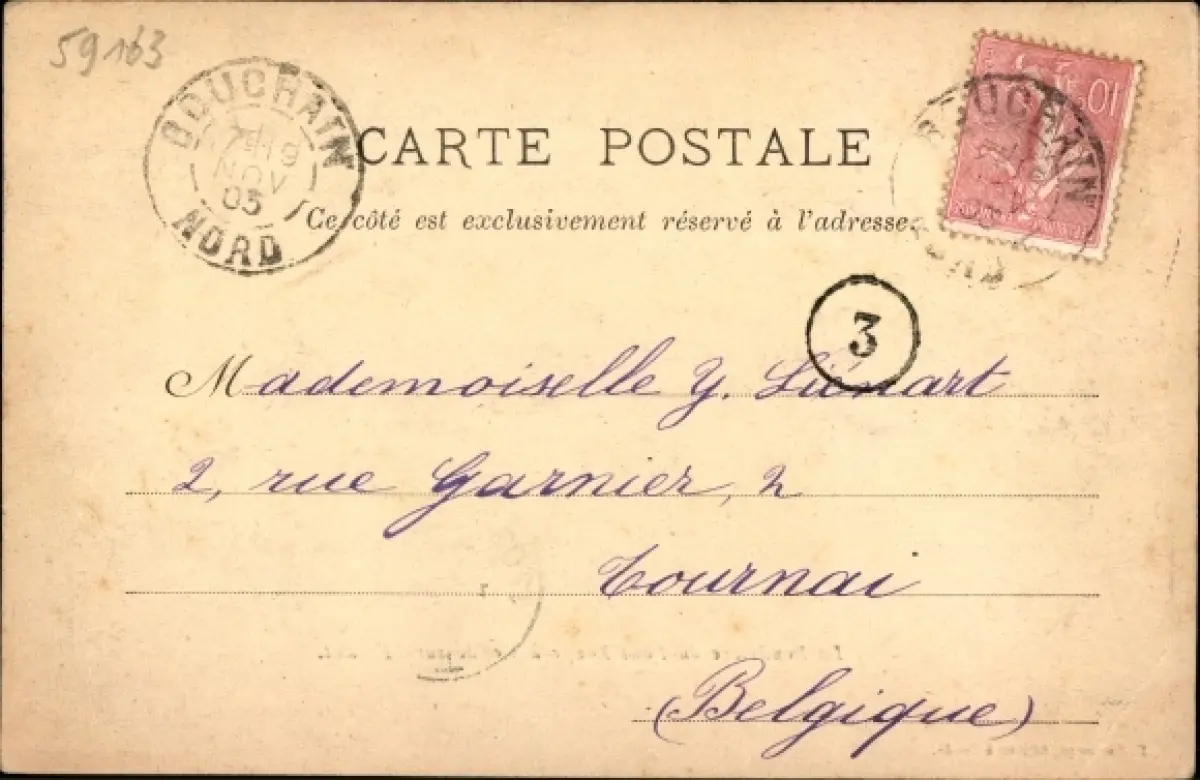 59163
BOUCHAIN
NOV
03
NORD
CARTE POSTALE
Ce côté est exclusivement réservé à l'adresse
10
BOUCHAIN
3
Mademoiselle Y. Liénart
2, rue Garnier, 2
Tournai
(Belgique)